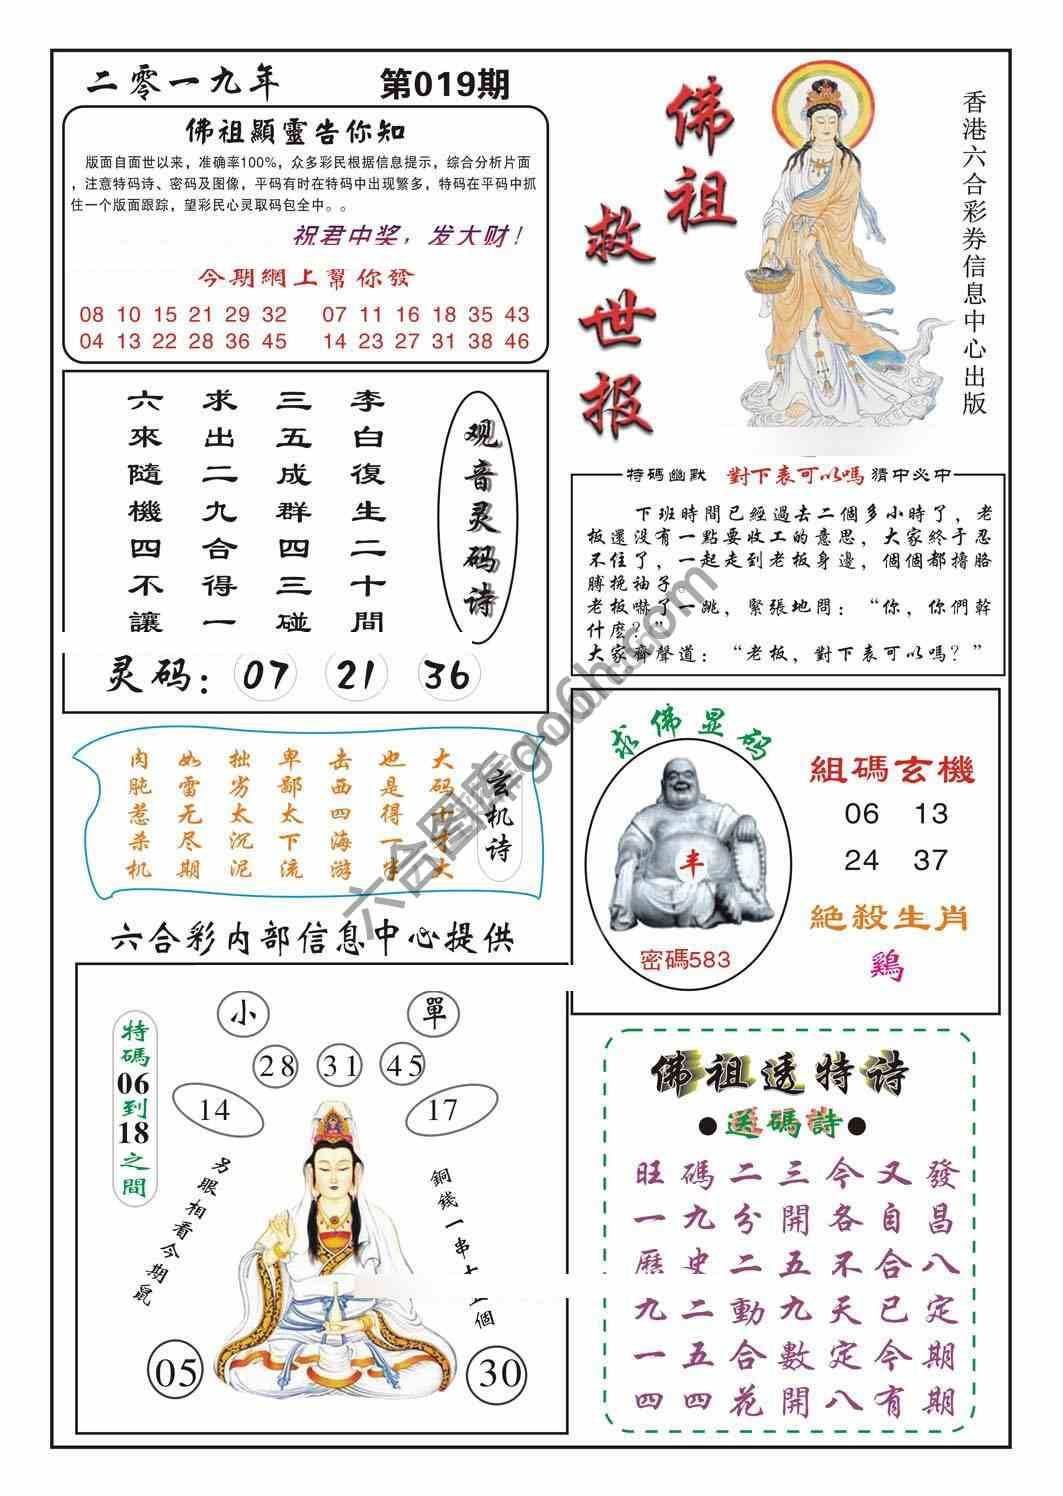 二零一九年 第019期
佛祖顯靈告你知
版面自面世以来，准确率100%，众多彩民根据信息提示，综合分析片面
，注意特码诗、密码及图像，平码有时在特码中出现繁多，特码在平码中抓
住一个版面跟踪，望彩民心灵取码包全中。。
祝君中奖，发大财！
今期網上幫你發
08 10 15 21 29 32 07 11 16 18 35 43
04 13 22 28 36 45 14 23 27 31 38 46
佛祖
救世报
香港六合彩券信息中心出版
观音灵码诗
李白復生二十間
三五成群四三碰
求出二九合得一
六來隨機四不讓
灵码：07 21 36
特碼幽默 對下表可以嗎 猜中必中
下班時間已經過去二個多小時了，老
板還没有一點要收工的意思，大家終于忍
不住了，一起走到老板身邊，個個都擼胳
膊挽袖子。
老板嚇了一跳，緊張地問：“你，你們幹
什麽？”
大家齊聲道：“老板，對下表可以嗎？”
玄机诗
大码十才大
也是得一半
击西四海游
卑鄙太下流
拙劣太沉泥
如雷无尽期
肉肫惹杀机
求佛显码
丰
密碼583
組碼玄機
06 13
24 37
絕殺生肖
鷄
六合彩内部信息中心提供
特碼06到18之間
小 單
28 31 45
14 17
另眼相看今期鼠
銅錢一串十 個
05 30
佛祖透特诗
●送碼詩●
旺碼二三今又發
一九分開各自昌
歷史二五不合八
九二動九天已定
一五合數定今期
四四花開八有期
六合图库go6h.com